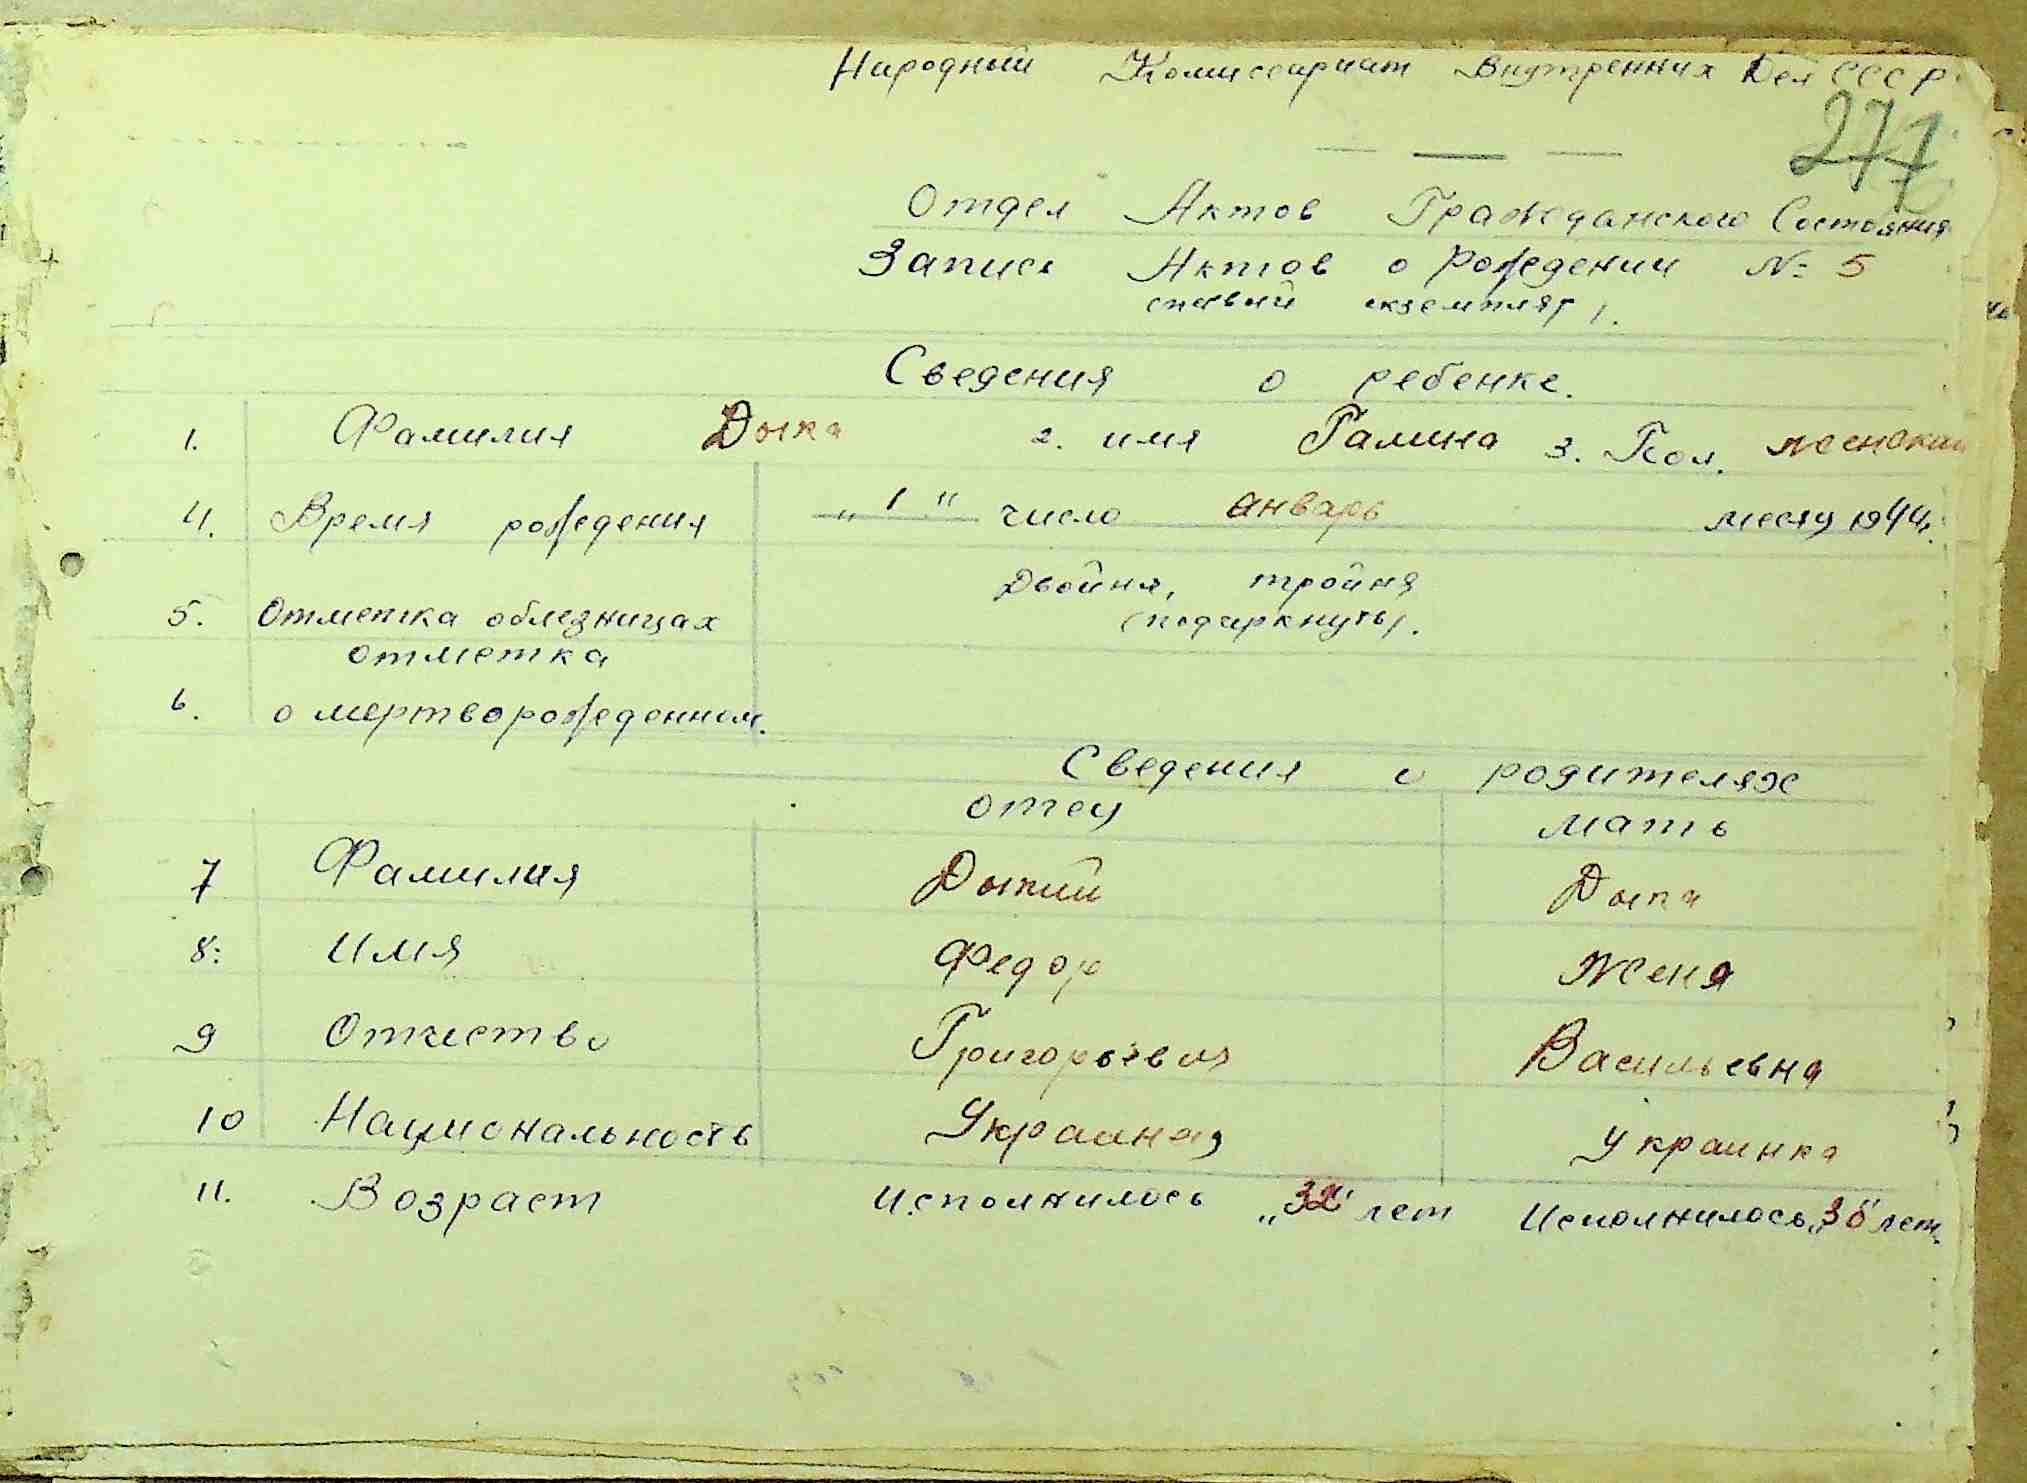 Народний Комиссариат Внутренних Дел СССР.
277
Отдел Актов Гражданского Состояния
Запись Актов о Рождении № 5
екземпляр 1.
Сведения о ребенке.
1. Фамилия Дыка 2. имя Галина 3. Пол. женский
4. Время рождения "1" число январь месяц 1944.
Двойня, тройня
5. Отметка облезницах (подчиркнуть).
отметка
6. о мертворожденном.
Сведения о родителях
отец мать
7 Фамилия Дыкий Дыка
8: имя Федор Женя
9 Отчество Григорьевич Васильевна
10 Национальность Украинец Украинка
11. Возраст Исполнилось "32" лет Исполнилось "30" лет.